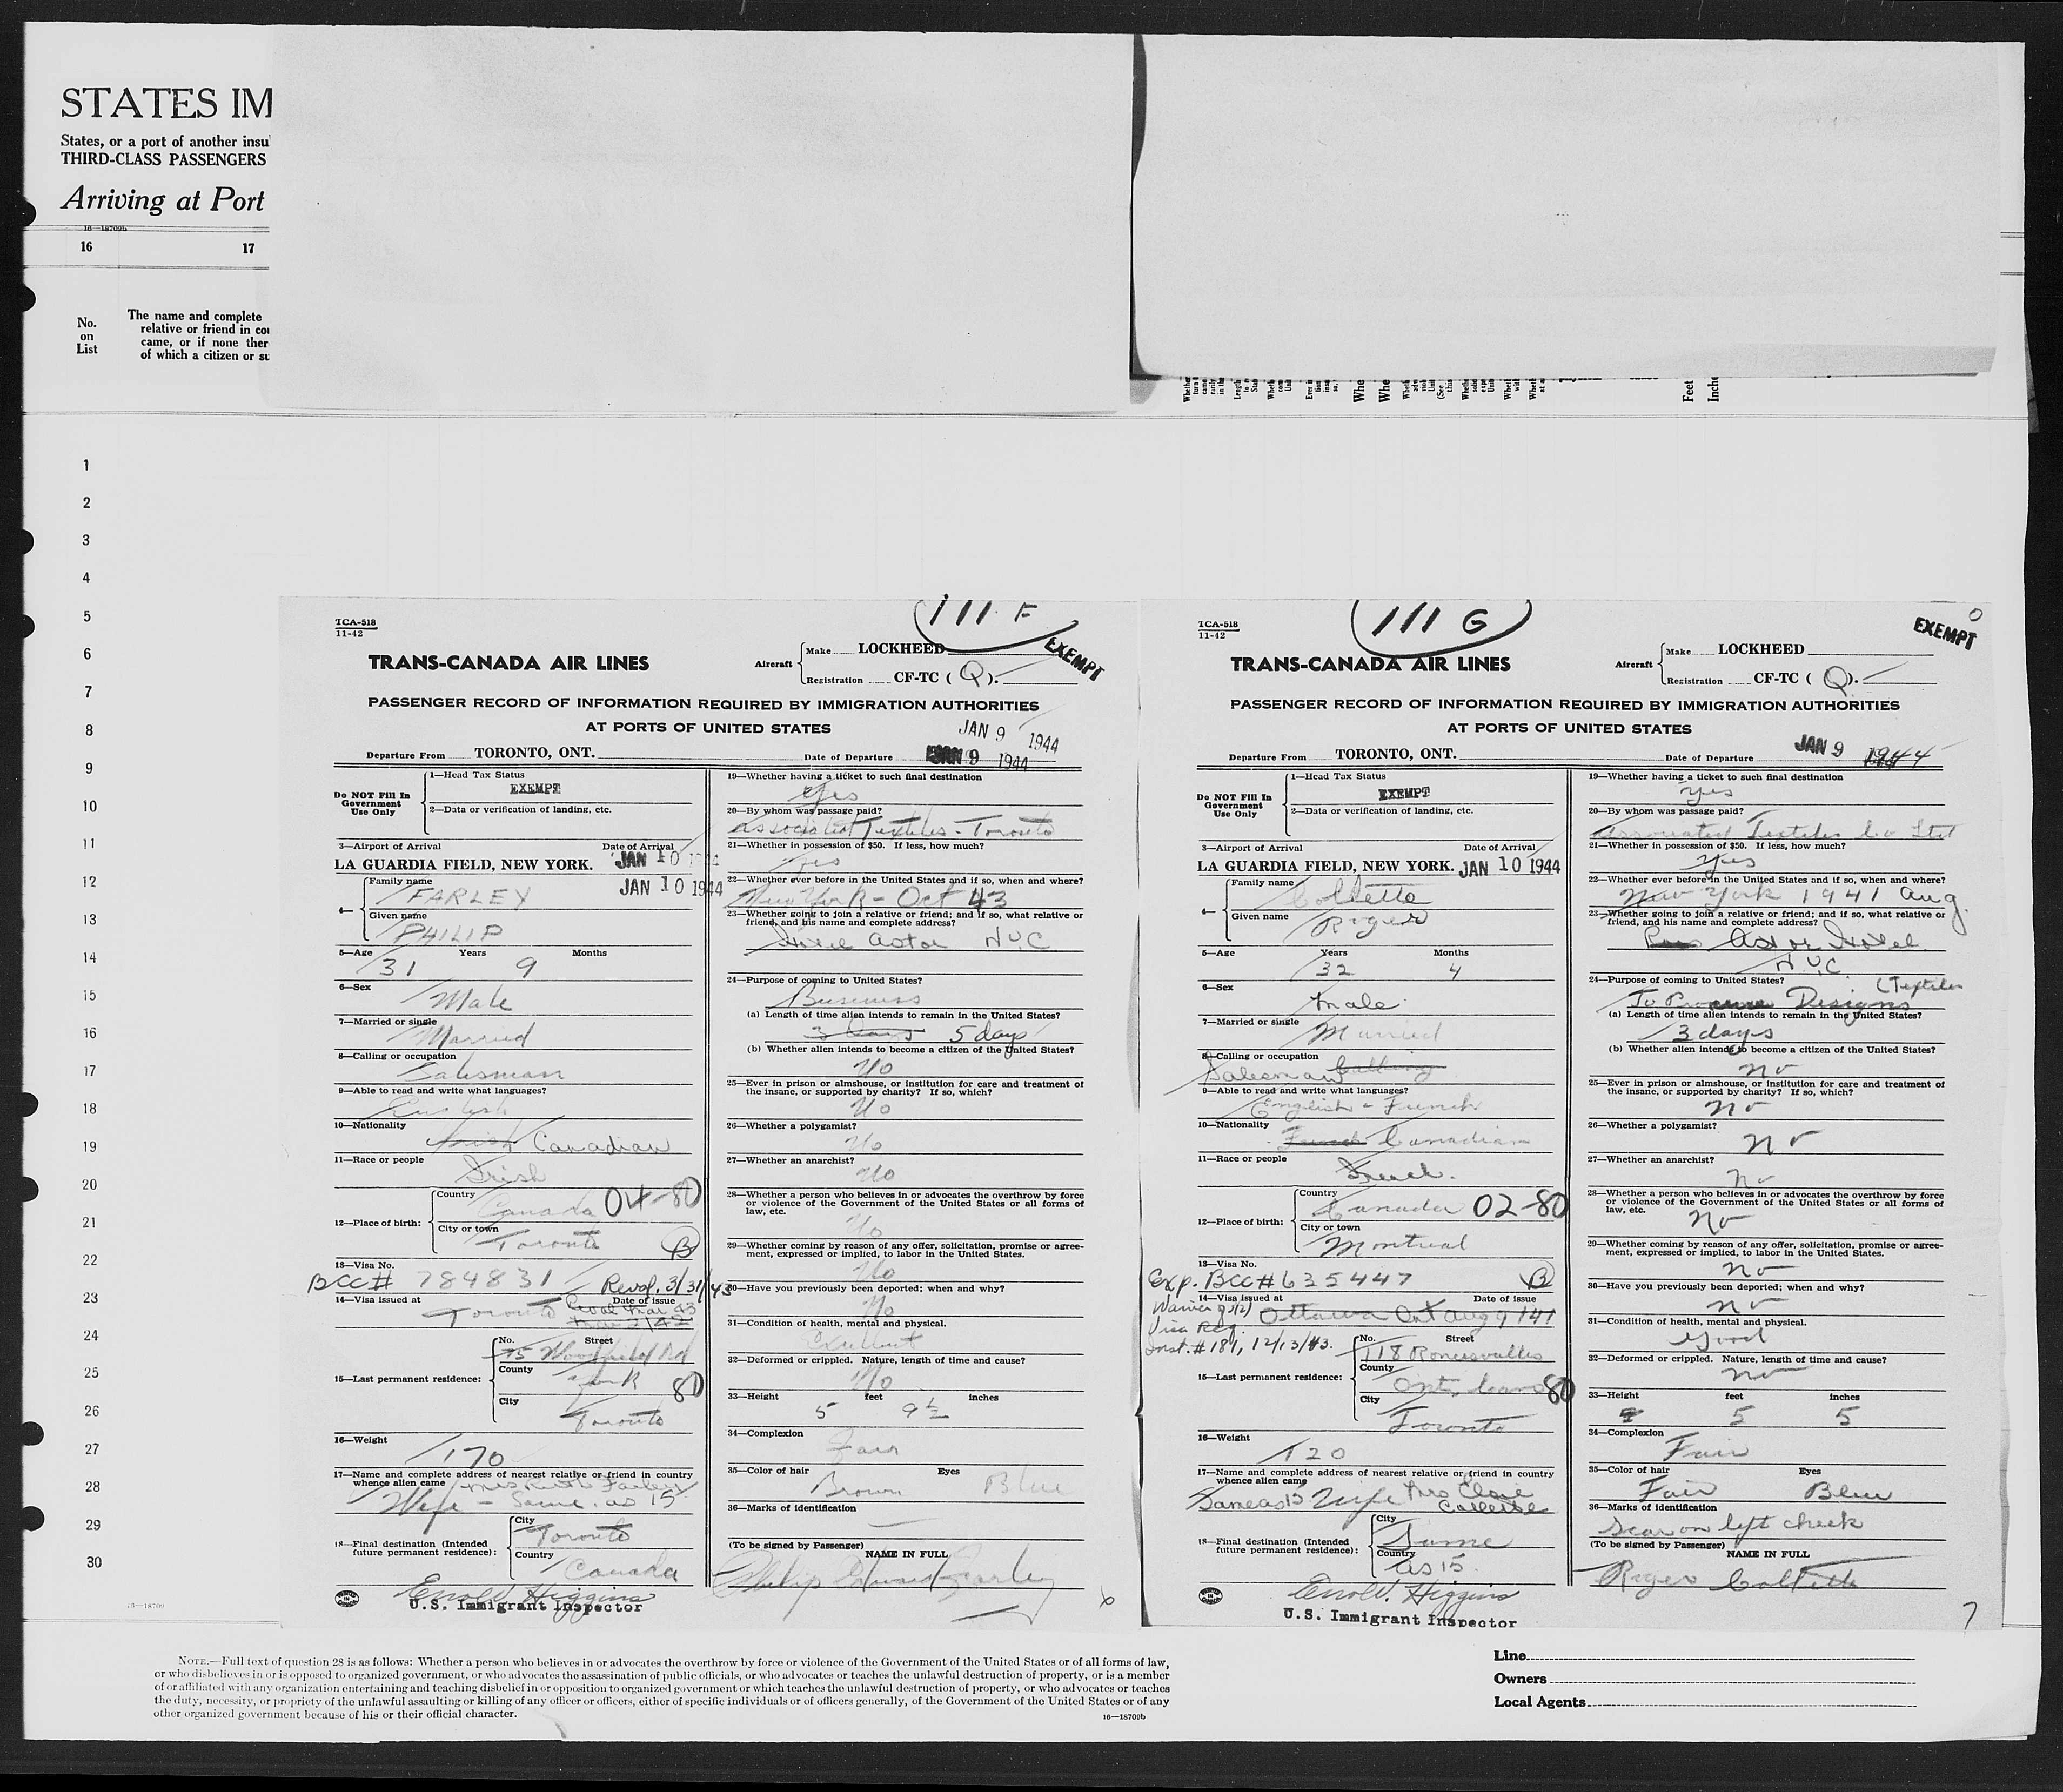 STATES IM
States, or a port of another insu
THIRD-CLASS PASSENGERS
Arriving at Port
16—18709b
16 17
No.
on
List
The name and complete
relative or friend in cou
came, or if none ther
of which a citizen or su
Feet
Inche
1
2
3
4
5
6
7
8
9
10
11
12
13
14
15
16
17
18
19
20
21
22
23
24
25
26
27
28
29
30
16—18709
111 F
TCA-518
11-42
TRANS-CANADA AIR LINES
Aircraft
Make LOCKHEED
Registration CF-TC (Q).
EXEMPT
PASSENGER RECORD OF INFORMATION REQUIRED BY IMMIGRATION AUTHORITIES
AT PORTS OF UNITED STATES
JAN 9 1944
Departure From TORONTO, ONT. Date of Departure JAN 9 1944
Do NOT Fill In
Government
Use Only
1—Head Tax Status
EXEMPT
2—Data or verification of landing, etc.
3—Airport of Arrival Date of Arrival
LA GUARDIA FIELD, NEW YORK. JAN 10 1944
JAN 10 1944
4—
Family name
FARLEY
Given name
PHILIP
5—Age Years Months
31 9
6—Sex
Male
7—Married or single
Married
8—Calling or occupation
Salesman
9—Able to read and write what languages?
English
10—Nationality
Irish Canadian
11—Race or people
Irish
12—Place of birth:
Country
Canada 04-80
City or town
Toronto B
13—Visa No.
BCC# 784831 Reval. 3/31/43
14—Visa issued at Date of issue
Toronto Reval Mar 43
15—Last permanent residence:
No. Street
75 Woodfield Rd
County
York 80
City
Toronto
16—Weight
170
17—Name and complete address of nearest relative or friend in country
whence alien came Mrs Ruth Farley
Wife - Same as 15
18—Final destination (Intended
future permanent residence):
City
Toronto
Country
Canada
Enold. Higgins
U.S. Immigrant Inspector
19—Whether having a ticket to such final destination
Yes
20—By whom was passage paid?
Associated Textiles - Toronto
21—Whether in possession of $50. If less, how much?
Yes
22—Whether ever before in the United States and if so, when and where?
New York - Oct 43
23—Whether going to join a relative or friend; and if so, what relative or
friend, and his name and address complete?
Astor NYC
24—Purpose of coming to United States?
Business
(a) Length of time alien intends to remain in the United States?
3 days 5 days
(b) Whether alien intends to become a citizen of the United States?
No
25—Ever in prison or almshouse, or institution for care and treatment of
the insane, or supported by charity? If so, which?
No
26—Whether a polygamist?
No
27—Whether an anarchist?
No
28—Whether a person who believes in or advocates the overthrow by force
or violence of the Government of the United States or all forms of
law, etc.
No
29—Whether coming by reason of any offer, solicitation, promise or agree-
ment, expressed or implied, to labor in the United States.
No
30—Have you previously been deported; when and why?
No
31—Condition of health, mental and physical.
Excellent
32—Deformed or crippled. Nature, length of time and cause?
No
33—Height feet inches
5 9½
34—Complexion
Fair
35—Color of hair Eyes
Brown Blue
36—Marks of identification
—
(To be signed by Passenger) NAME IN FULL
Philip Edward Farley
6
111 G
TCA-518
11-42
TRANS-CANADA AIR LINES
Aircraft
Make LOCKHEED
Registration CF-TC (Q).
EXEMPT
PASSENGER RECORD OF INFORMATION REQUIRED BY IMMIGRATION AUTHORITIES
AT PORTS OF UNITED STATES
Departure From TORONTO, ONT. Date of Departure JAN 9 1944
Do NOT Fill In
Government
Use Only
1—Head Tax Status
EXEMPT
2—Data or verification of landing, etc.
3—Airport of Arrival Date of Arrival
LA GUARDIA FIELD, NEW YORK. JAN 10 1944
4—
Family name
Collette
Given name
Roger
5—Age Years Months
32 4
6—Sex
Male
7—Married or single
Married
8—Calling or occupation
Salesman
9—Able to read and write what languages?
English - French
10—Nationality
French Canadian
11—Race or people
French.
12—Place of birth:
Country
Canada 02-80
City or town
Montreal
13—Visa No.
Exp. BCC# 635447 B
14—Visa issued at Date of issue
Ottawa Ont Aug 9/41
Waiver
Visa Req.
Inst. #181, 12/13/43.
15—Last permanent residence:
No. Street
118 Roncesvalles
County
Ont, Cana 80
City
Toronto
16—Weight
120
17—Name and complete address of nearest relative or friend in country
whence alien came
Same as 15 Wife Mrs
18—Final destination (Intended
future permanent residence):
City
Same
Country
as 15.
Enold. Higgins
U.S. Immigrant Inspector
19—Whether having a ticket to such final destination
yes
20—By whom was passage paid?
Associated Textiles Co Ltd
21—Whether in possession of $50. If less, how much?
yes
22—Whether ever before in the United States and if so, when and where?
New York 1941 Aug.
23—Whether going to join a relative or friend; and if so, what relative or
friend, and his name and complete address?
Astor Hotel
N.Y.C.
24—Purpose of coming to United States? (Textiles
To Designs
(a) Length of time alien intends to remain in the United States?
3 days
(b) Whether alien intends to become a citizen of the United States?
no
25—Ever in prison or almshouse, or institution for care and treatment of
the insane, or supported by charity? If so, which?
no
26—Whether a polygamist?
no
27—Whether an anarchist?
no
28—Whether a person who believes in or advocates the overthrow by force
or violence of the Government of the United States or all forms of
law, etc.
no
29—Whether coming by reason of any offer, solicitation, promise or agree-
ment, expressed or implied, to labor in the United States.
no
30—Have you previously been deported; when and why?
no
31—Condition of health, mental and physical.
good
32—Deformed or crippled. Nature, length of time and cause?
no
33—Height feet inches
5 5
34—Complexion
Fair
35—Color of hair Eyes
Fair Blue
36—Marks of identification
Scar on left cheek
(To be signed by Passenger) NAME IN FULL
Roger Collette
7
NOTE.—Full text of question 28 is as follows: Whether a person who believes in or advocates the overthrow by force or violence of the Government of the United States or of all forms of law,
or who disbelieves in or is opposed to organized government, or who advocates the assassination of public officials, or who advocates or teaches the unlawful destruction of property, or is a member
of or affiliated with any organization entertaining and teaching disbelief in or opposition to organized government or which teaches the unlawful destruction of property, or who advocates or teaches
the duty, necessity, or propriety of the unlawful assaulting or killing of any officer or officers, either of specific individuals or of officers generally, of the Government of the United States or of any
other organized government because of his or their official character.
16—18709b
Line
Owners
Local Agents